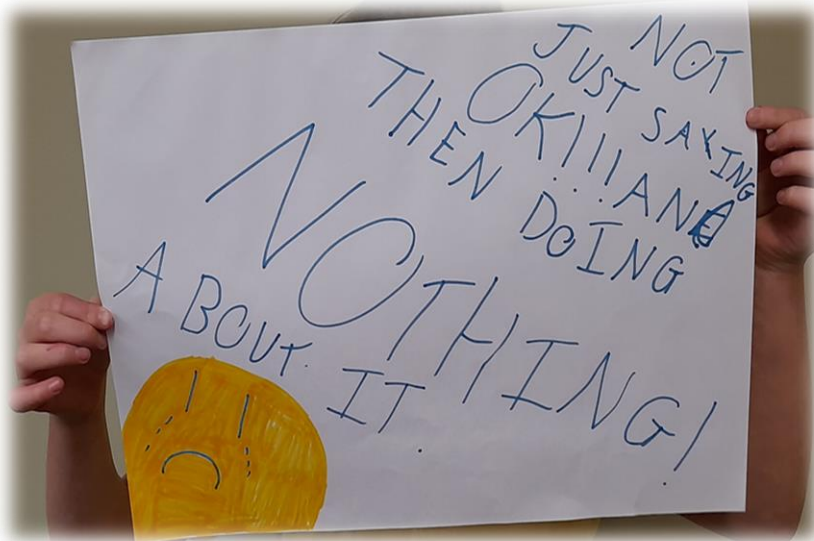 NOT
JUST SAYING
OK!!! AND
THEN DOING
NOTHING!
ABOUT IT.